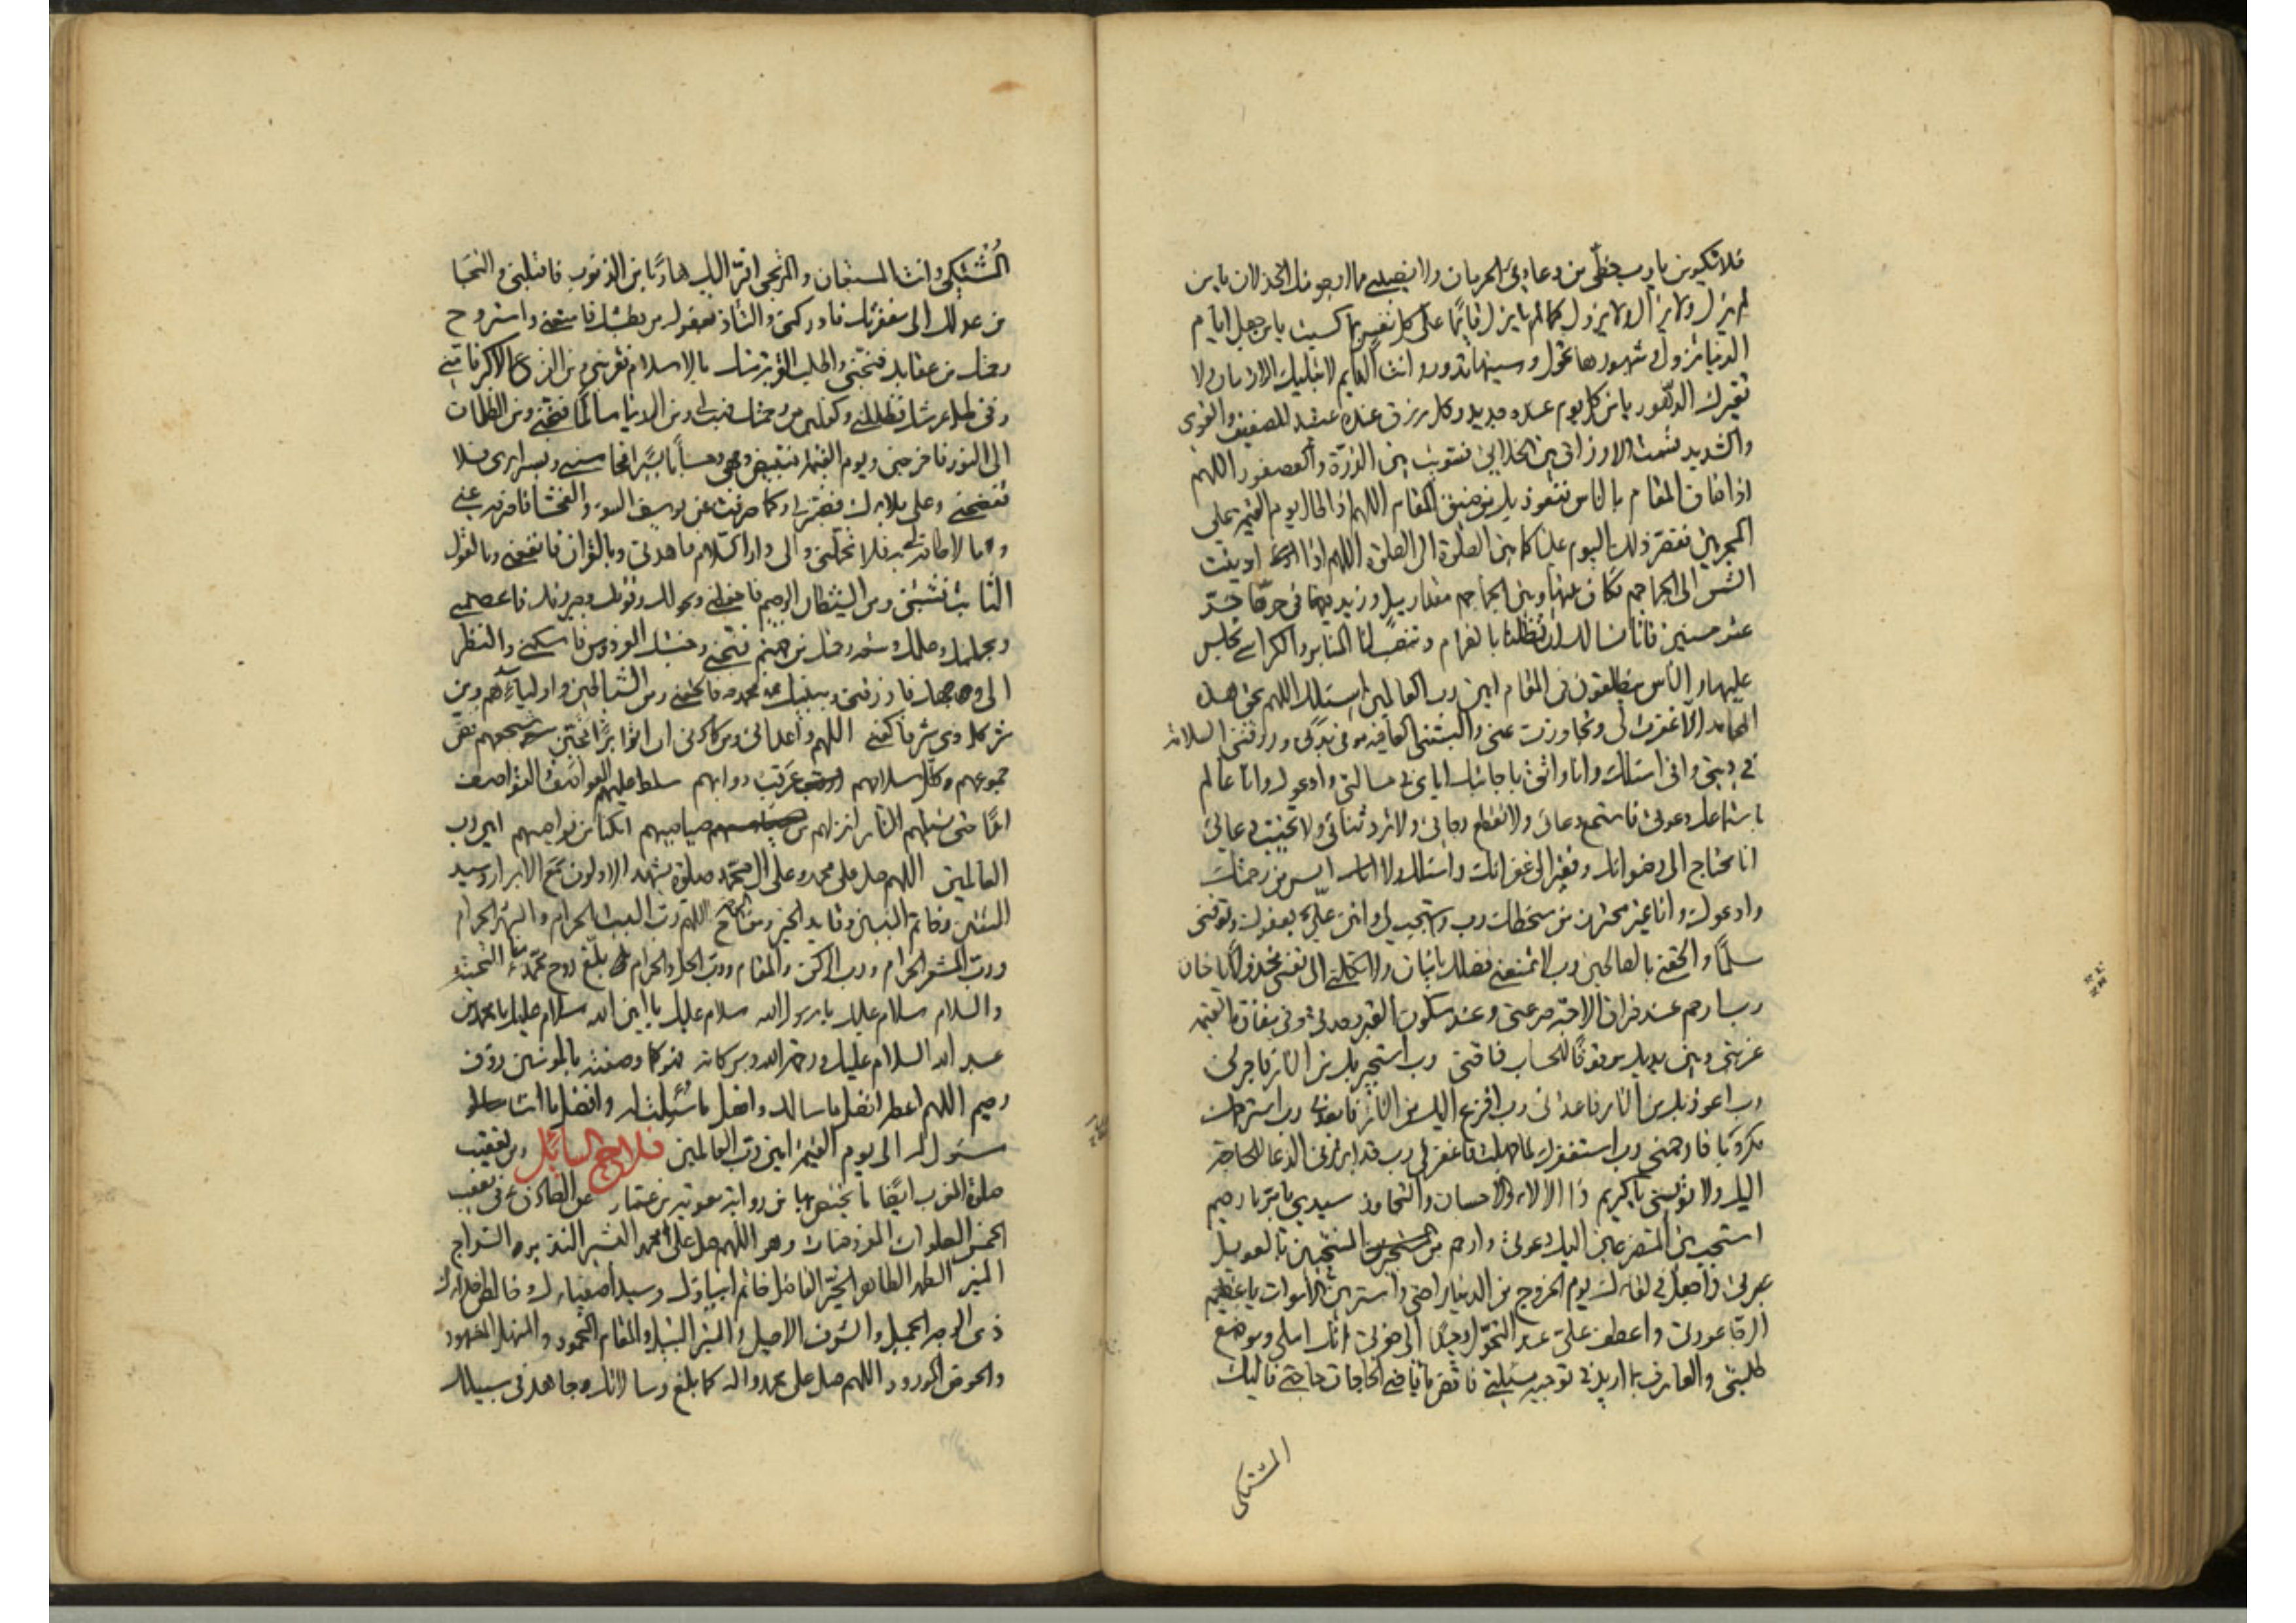 فلا تكونن يا رب حظي من دعاوي الحرمان ولا نصيبي مما ارجو منك الخذلان يا من
لم يزل ولا يزال ولا يزول كما لم يزل قائما على كل نفس بما كسبت يا من جعل ايام
الدنيا تزول وشهورها تحول وسنيها تدور وانت القايم لا تبليك الازمان ولا
تغيرك الدهور يا من كل يوم عنده جديد وكل رزق عنده عتيد للضعيف والقوي
والشديد قسمت الارزاق بين الخلايق فسويت بين الذرة والعصفور اللهم
اذا ضاق المقام بالناس فنعوذ بك من ضيق المقام اللهم اذا طال يوم القيمة على
المجرمين فقصر ذلك اليوم علينا كما بين الصلوة الى الصلوة اللهم اذا ادنيت
الشمس الى الجماجم فكان بينها وبين الجماجم مقدار ميل وزيد فيها في حرها حر
عشر سنين فانا نسالك ان تظلنا بالغمام وتنصب لنا المنابر والكراسي نجلس
عليها والناس ينطلقون في المقام امين رب العالمين اسئلك اللهم بحق هذه
المحامد الا غفرت لي وتجاوزت عني والبستني العافية في بدني ورزقتني السلامة
في ديني واني اسئلك وانا واثق باجابتك اياي في مسالتي وادعوك وانا عالم
باستماعك دعوتي فاستمع دعائي ولا تقطع رجائي ولا ترد ثنائي ولا تخيب دعائي
انا محتاج الى رضوانك وفقير الى غفرانك واسئلك ولا ايس من رحمتك
وادعوك وانا غير محترز من سخطك رب واستجب لي وامنن علي بعفوك وتوفني
مسلما والحقني بالصالحين رب لا تمنعني فضلك يا منان ولا تكلني الى نفسي مخذولا يا حنان
رب ارحم عند فراق الاحبة صرعتي وعند سكون القبر وحدتي وفي مفازة القيمة
غربتي وبين يديك موقوفا للحساب فاقتي رب استجير بك من النار فاجرني
رب اعوذ بك من النار فاعذني رب افزع اليك من النار فابعدني رب استرحمك
مكروبا فارحمني رب استغفرك لما جهلت فاغفر لي رب قد ابرزني الدعا للحاجة
اليك ولا تؤيسني يا كريم ذا الالاء والاحسان والتجاوز سيدي يا بر يا رحيم
استجب بين المتضرعين اليك دعوتي وارحم من المنتحبين بالعويل
عبرتي واجعل في لقائك يوم الخروج من الدنيا راحتي واستر بين الاموات يا عظيم
الرجا عورتي واعطف علي عند التحول وحيدا الى حفرتي انك املي وموضع
طلبتي والعارف بما اريد في توجيه مسئلتي فاقض يا قاضي الحاجات حاجتي فاليك
المشتكى
المشتكى وانت المستعان والمرتجى افر اليك هاربا من الذنوب فاقبلني والتجا
من عدلك الى مغفرتك فادركني والتاذ بعفوك من بطشك فامنعني واستروح
رحمتك من عقابك فنجني واطلب القربة منك بالاسلام فقربني ومن الفزع الاكبر فامني
وفي ظل عرشك فظللني وكفلين من رحمتك فهب لي ومن الدنيا سالما فنجني ومن الظلمات
الى النور فاخرجني ويوم القيمة فبيض وجهي وحسابا يسيرا فحاسبني وبسرايري فلا
تفضحني وعلى بلائك فصبرني وكما صرفت عن يوسف السوء والفحشا فاصرفه عني
وما لا طاقة لي به فلا تحملني والى دار السلام فاهدني وبالقران فانفعني وبالقول
الثابت فثبتني ومن الشيطان الرجيم فاحفظني وبحولك وقوتك وجبروتك فاعصمني
وبحلمك وعلمك وسعة رحمتك من جهنم فنجني وجنتك الفردوس فاسكني والنظر
الى وجهك فارزقني وبنبيك محمد فالحقني ومن الشياطين واوليائهم ومن
شر كل ذي شر فاكفني اللهم واعدائي ومن كادني ان اتوا برا فجبن شجيعهم فض
جموعهم وكلل سلاحهم عرقب دوابهم سلط عليهم العواصف والقواصف
ابدا حتى تصليهم النار انزلهم من صياصيهم امكنا من نواصيهم امين رب
العالمين اللهم صل على محمد وعلى ال محمد صلوة يشهد الاولون مع الابرار وسيد
المتقين وخاتم النبيين وقايد الخير ومفتاح الرحمة اللهم رب البيت الحرام والشهر الحرام
ورب المشعر الحرام ورب الركن والمقام ورب الحل والحرام بلغ روح محمد منا التحية
والسلام سلام عليك يا رسول الله سلام عليك يا امين الله سلام عليك يا محمد بن
عبد الله السلام عليك ورحمة الله وبركاته فهو كما وصفته بالمؤمنين رؤف
رحيم اللهم اعطه افضل ما سالك وافضل ما سئلت له وافضل ما انت
مسئول له الى يوم القيمة امين رب العالمين فلاح السائل ومن تعقيب
صلوة المغرب ايضا ما يختص بها من رواية معوية بن عمار عن الصادق ع في تعقيب
الخمس الصلوات المفروضات وهو اللهم صل على محمد البشير النذير السراج
المنير الطهر الطاهر الخير الفاضل خاتم انبيائك وسيد اصفيائك وخالص اخلائك
ذي الوجه الجميل والشرف الاصيل والمنبر النبيل والمقام المحمود والمنهل المشهود
والحوض المورود اللهم صل على محمد واله كما بلغ رسالاتك وجاهد في سبيلك